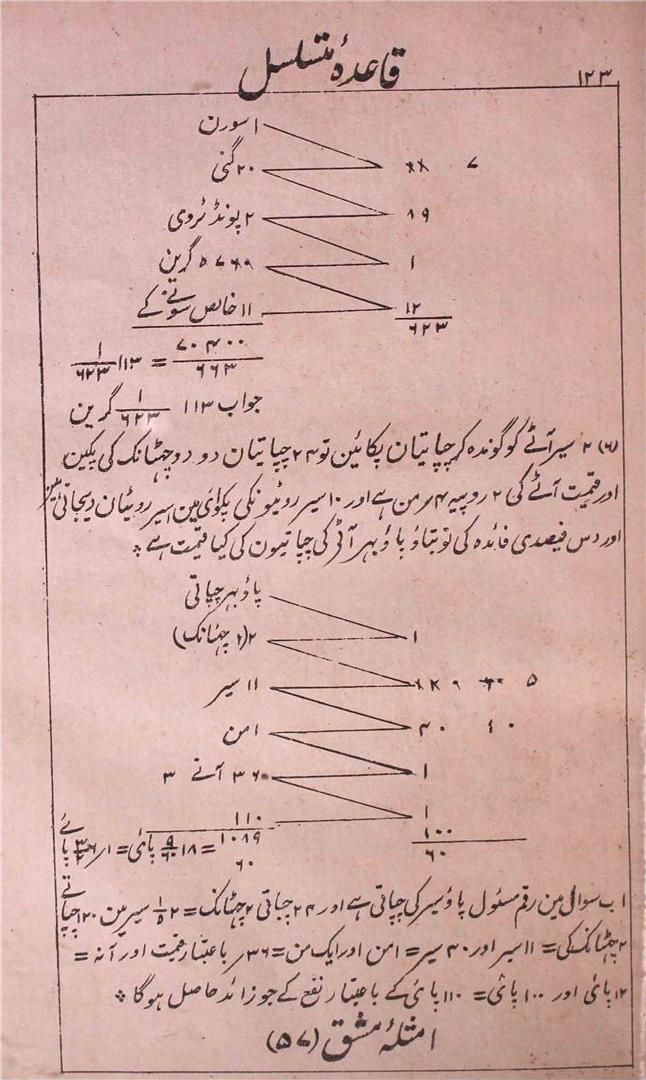 ۱۲۳
قاعدۂ متسلسل
۱ سورن
۲۰ گنی ۷
۲ پونڈ ٹروی ۸۹
۵۷۶۹ گرین ۱
۱۱ خالص سونے کے ۱۲
۶۲۳
۷۰۴۰۰/۶۶۳ = ۱۱۳ ۱/۶۲۳
جواب ۱۱۳ ۱/۶۲۳ گرین
(۶) ۲ سیر آٹے کو گوندہ کر چپاتیان پکائین تو ۲۴ چپاتیان دو دو چہٹانک کی پکین
اور قیمت آٹے کی ۲ روپیہ ۴؍ من ہے اور ۱۰ سیر روٹیونکی پکوائی مین سیر روٹیان دیجاتی ہین
اور دس فیصدی فائدہ کی تو بتاؤ پاؤ بہر آٹے کی چپاتیون کی کیا قیمت ہے
پاؤ بہر چپاتی
۲ (۲ چہٹانک) ۱
۱۱ سیر ۵
۱ من ۴۰ ۱۰
۳۶ آنے ۳ ۱
۱۱۰ ۱
۱۰۸۹/۶۰ = ۱۸ ۹/۶۰ پائی = ۱؍ ۶ ۳/۲ پائے ۱۰۰
۶۰
اب سوال مین رقم مسئول پاؤ سیر کی چپاتی ہے اور ۲۴ چپاتی ۲ چہٹانک = ۲ ۱/۵ سیر مین ۱۲۰ چپاتے
۲ چہٹانک کی = ۱۱ سیر اور ۴۰ سیر = ۱ من اور ایک من = ۳۶؍ باعتبار قیمت اور آنہ =
۱۲ پائی اور ۱۰۰ پائی = ۱۱۰ پائی کے باعتبار نفع کے جو زائد حاصل ہوگا
امثلۂ مشق (۵۷)